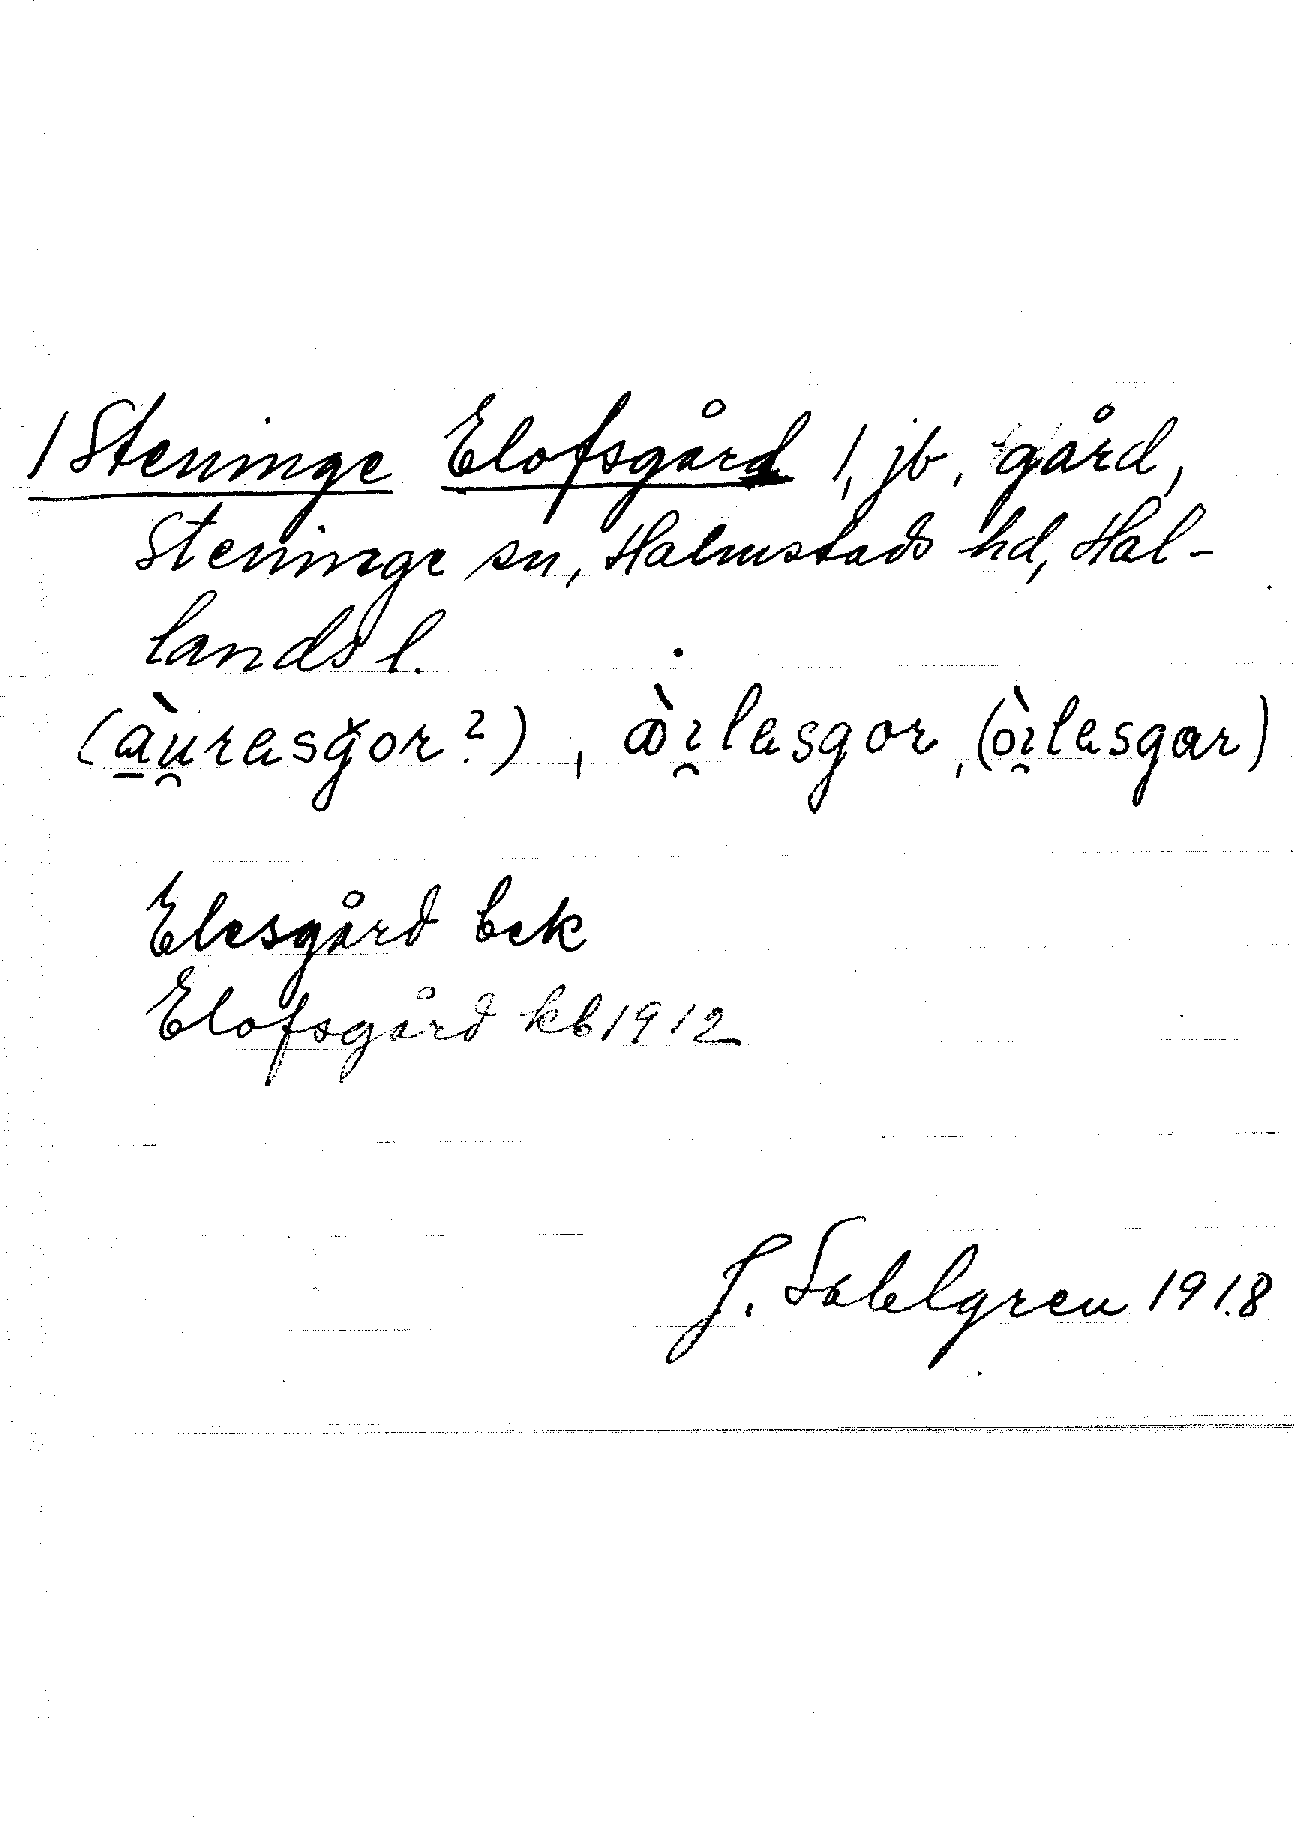 1 Steninge Elofsgård 1, jb, gård,
Steninge sn, Halmstads hd, Hal-
lands l.
(à̱u̯rasgor?), òi̯lasgor, (òi̯lasgar)
Elesgård bek
Elofsgård kb 1912
J. Sahlgren 1918